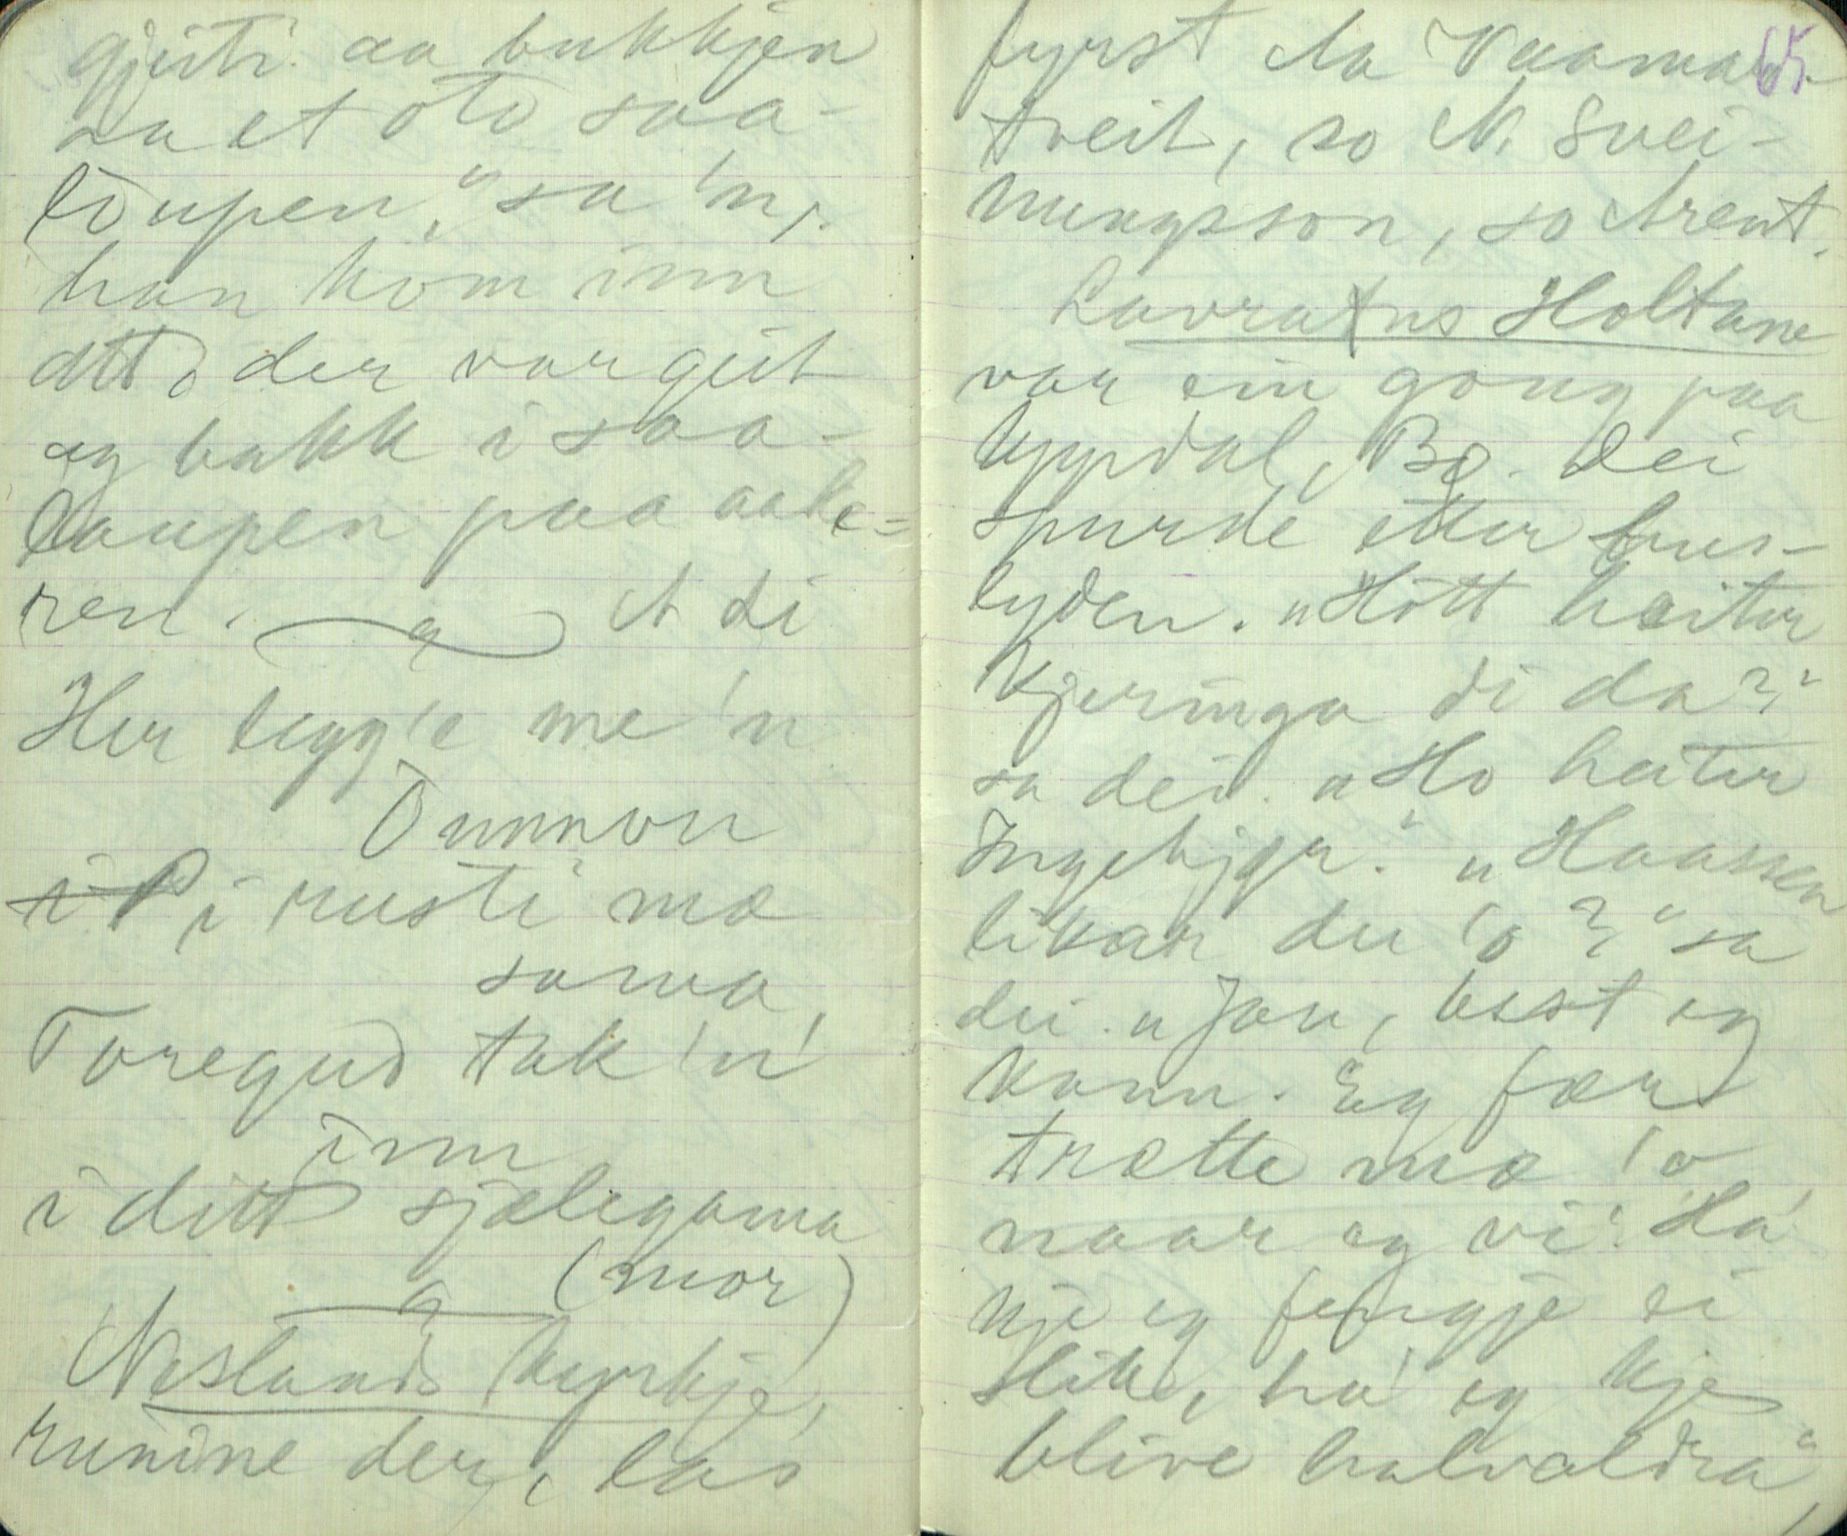 gjeiti aa bukkjen
aa et òtò saa-
lòupen," sa 'n,
han kòm inn
att, der var geit
og bukk i saa-
laupen paa aake-
ren. A di
Her ligg'e me 'n
Òunnòn
i rusti mæ
soma,
Toregud tak 'n
inn
i ditt sjælegama
(mor)
Neslands kyrkje,
runine der, las
65
fyrst Aa Vaama-
tveit, so N. Svei-
nungsson, so Arent.
Lavratns Holtane
var ein gong paa
Uppdal, Bø. Dei
spurde etter hus-
lyden. "Hòtt heiter
kjeringa di da?"
sa dei. "Ho heiter
Ingebjør." "Haassen
likar du 'o?" sa
dei. "Jau, best eg
kann. Eg fær
trætte mæ 'o
naar eg vi'. Ha'
kje eg fengje ei
slik, ha' eg kje
blive halvaldra",